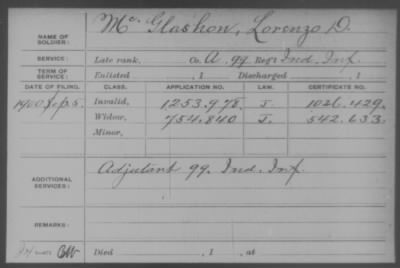 NAME OF SOLDIER: Mc. Glashon, Lorenzo D.
SERVICE: Late rank, Co. A. 99 Reg't Ind. Inf.
TERM OF SERVICE: Enlisted , 1 Discharged , 1
DATE OF FILING. CLASS. APPLICATION NO. LAW. CERTIFICATE NO.
1900 Invalid, 1253.978. J. 1026.429.
Widow, 754.840 J. 542.633
Minor,
ADDITIONAL SERVICES: Adjutant 99. Ind. Inf.
REMARKS:
Died , 1 , at